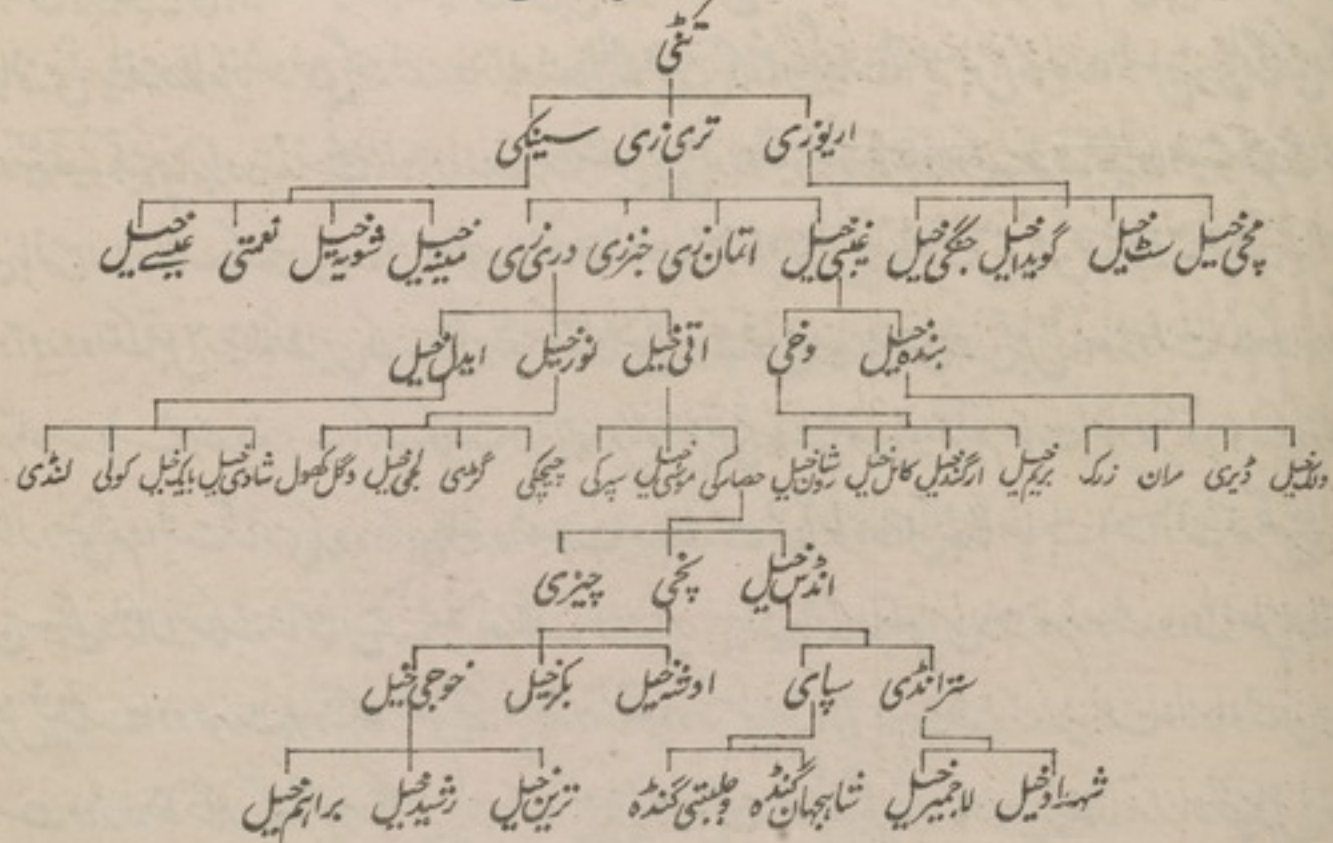 تنی
اریوزی تری زی سینکی
مچی خیل سٹ خیل گویدا خیل جگی خیل غیبی خیل اتمان زی خبزی دری زی مینہ خیل شویہ خیل نعمتی عیسے خیل
بندہ خیل وخی اتی خیل نور خیل ایدل خیل
ڈیری مران زرکہ بریم خیل ارگند خیل کامل خیل حصارکی سپرکی چیچکی گڑھی لجی خیل شادی خیل بابک خیل کولی لنڈی
انڈس خیل پخی چیزی
سترانڈی سپای اوشہ خیل بکر خیل خوجی خیل
شہزاد خیل لاجمیر خیل شاہجہان گنڈہ ولبتی گنڈہ ترین خیل رشید خیل براہم خیل